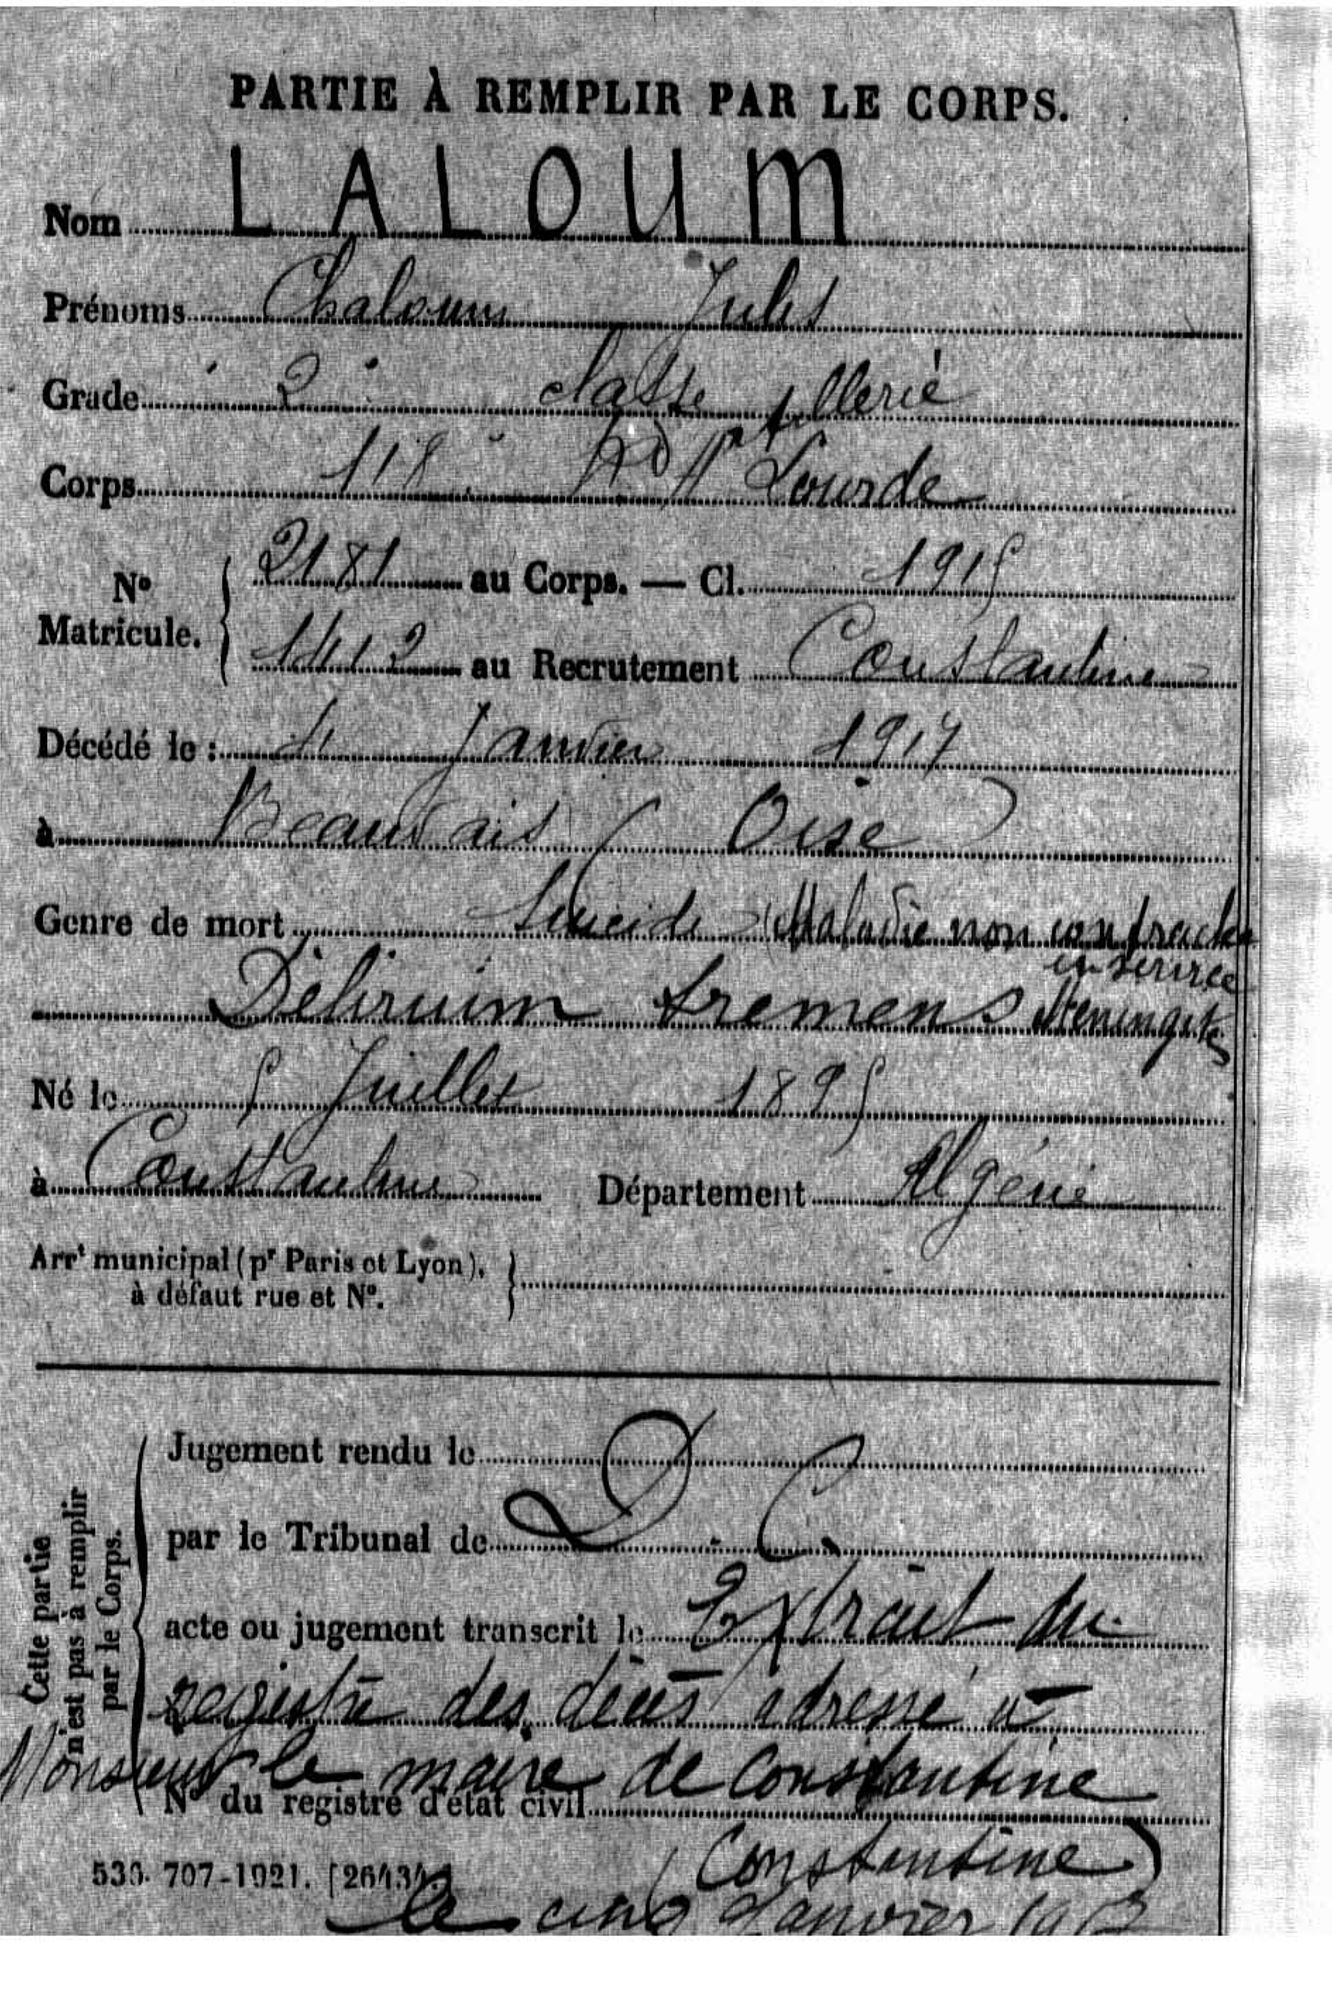 PARTIE À REMPLIR PAR LE CORPS.
Nom LALOUM
Prénoms Chaloum Jules
Grade 2e classe
Corps 118e Rt Artillerie Lourde
No Matricule. { 2181 au Corps. — Cl. 1915
1412 au Recrutement Constantine
Décédé le : 4 Janvier 1917
à Beauvais (Oise)
Genre de mort Suicide Maladie non contractée
en service
Délirium tremens Meningite
Né le 5 Juillet 1895
à Constantine Département Algérie
Arrt municipal (pr Paris et Lyon), }
à défaut rue et No.
Cette partie n'est pas à remplir par le Corps.
Jugement rendu le
par le Tribunal de D. C.
acte ou jugement transcrit le Extrait du
registre des décès adressé à
Monsieur le maire de Constantine
No du registre d'état civil
(Constantine)
530. 707-1921. [26434.]
le cinq Janvier